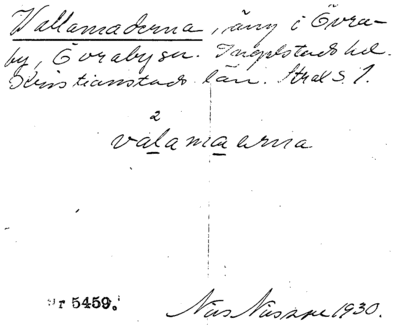 Vallamaderna, äng i Övra-
by, Övraby sn. Ingelstads hd.
Kristianstads län. Strax S. 1.
2
valamaerna
Nr 5459.
Nils Nilsson 1930.